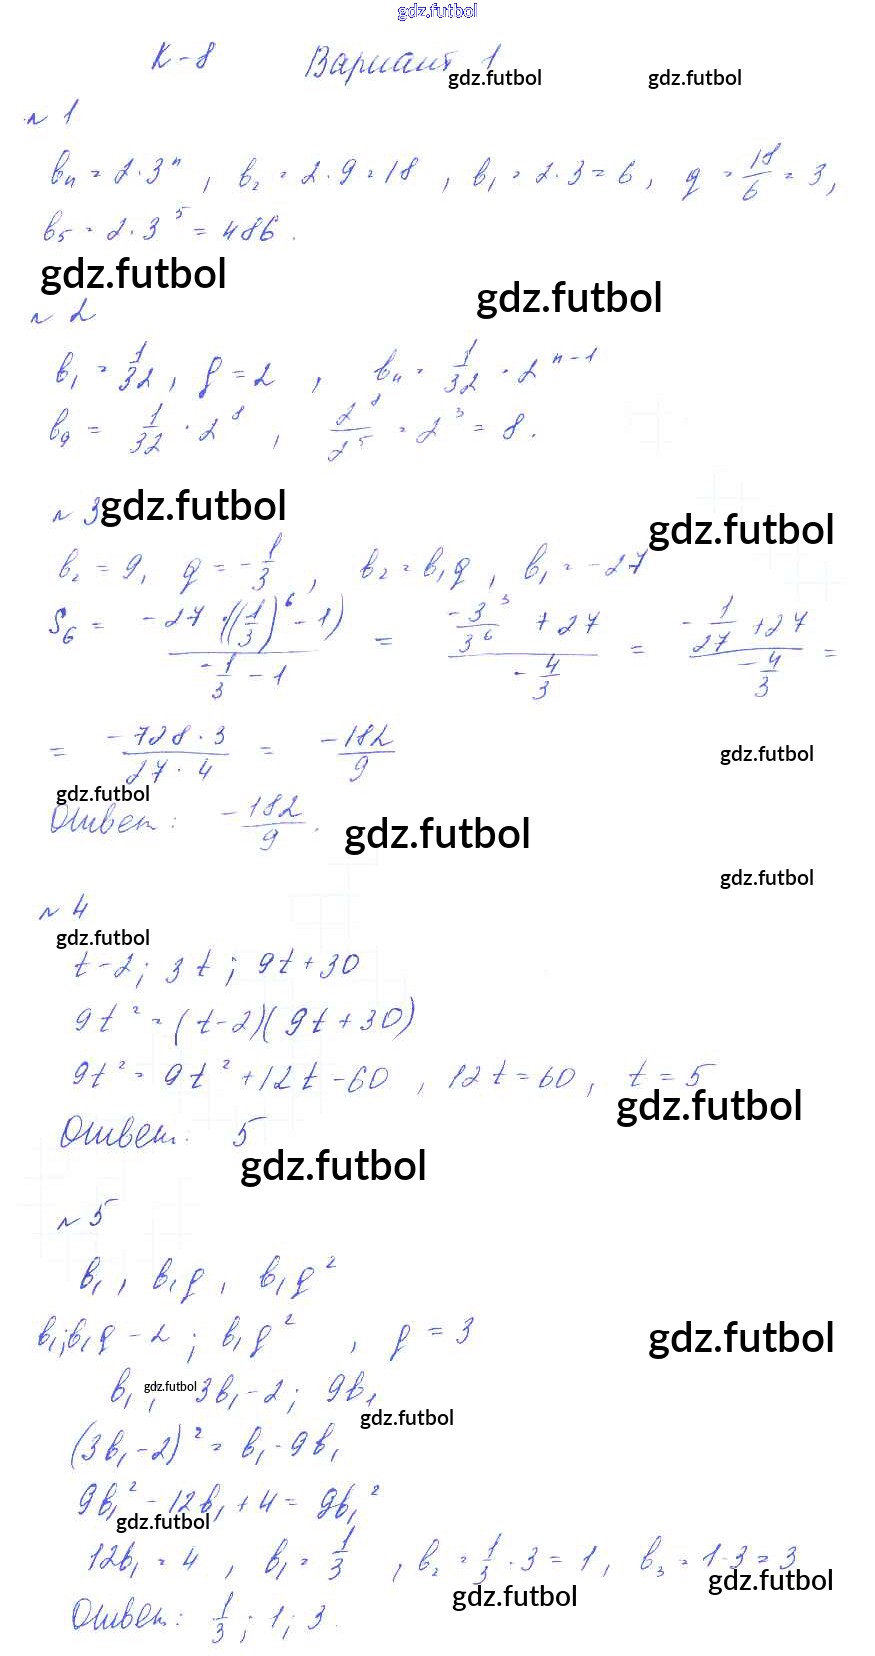 gdz.futbol
К-8 Вариант 1
gdz.futbol gdz.futbol
№ 1
bₙ = 2·3ⁿ, b₂ = 2·9 = 18, b₁ = 2·3 = 6, q = 18/6 = 3,
b₅ = 2·3⁵ = 486.
gdz.futbol
gdz.futbol
№ 2
b₁ = 1/32, q = 2, bₙ = 1/32 · 2ⁿ⁻¹
b₉ = 1/32 · 2⁸, 2⁸/2⁵ = 2³ = 8.
№ 3 gdz.futbol
gdz.futbol
b₂ = 9, q = -1/3, b₂ = b₁q, b₁ = -27
S₆ = (-27·((1/3)⁶ - 1))/(-1/3 - 1) = (-3³/3⁶ + 27)/(-4/3) = (-1/27 + 27)/(-4/3) =
= (-728·3)/(27·4) = -182/9
gdz.futbol
gdz.futbol
Ответ: -182/9.
gdz.futbol
gdz.futbol
№ 4
gdz.futbol
t-2; 3t; 9t+30
9t² = (t-2)(9t+30)
9t² = 9t² + 12t - 60, 12t = 60, t = 5
gdz.futbol
Ответ: 5
gdz.futbol
№ 5
b₁, b₁q, b₁q²
b₁; b₁q - 2; b₁q², q = 3
gdz.futbol
b₁; 3b₁-2; 9b₁
gdz.futbol
gdz.futbol
(3b₁-2)² = b₁·9b₁
9b₁² - 12b₁ + 4 = 9b₁²
gdz.futbol
12b₁ = 4, b₁ = 1/3, b₂ = 1/3 · 3 = 1, b₃ = 1·3 = 3
gdz.futbol gdz.futbol
Ответ: 1/3; 1; 3.